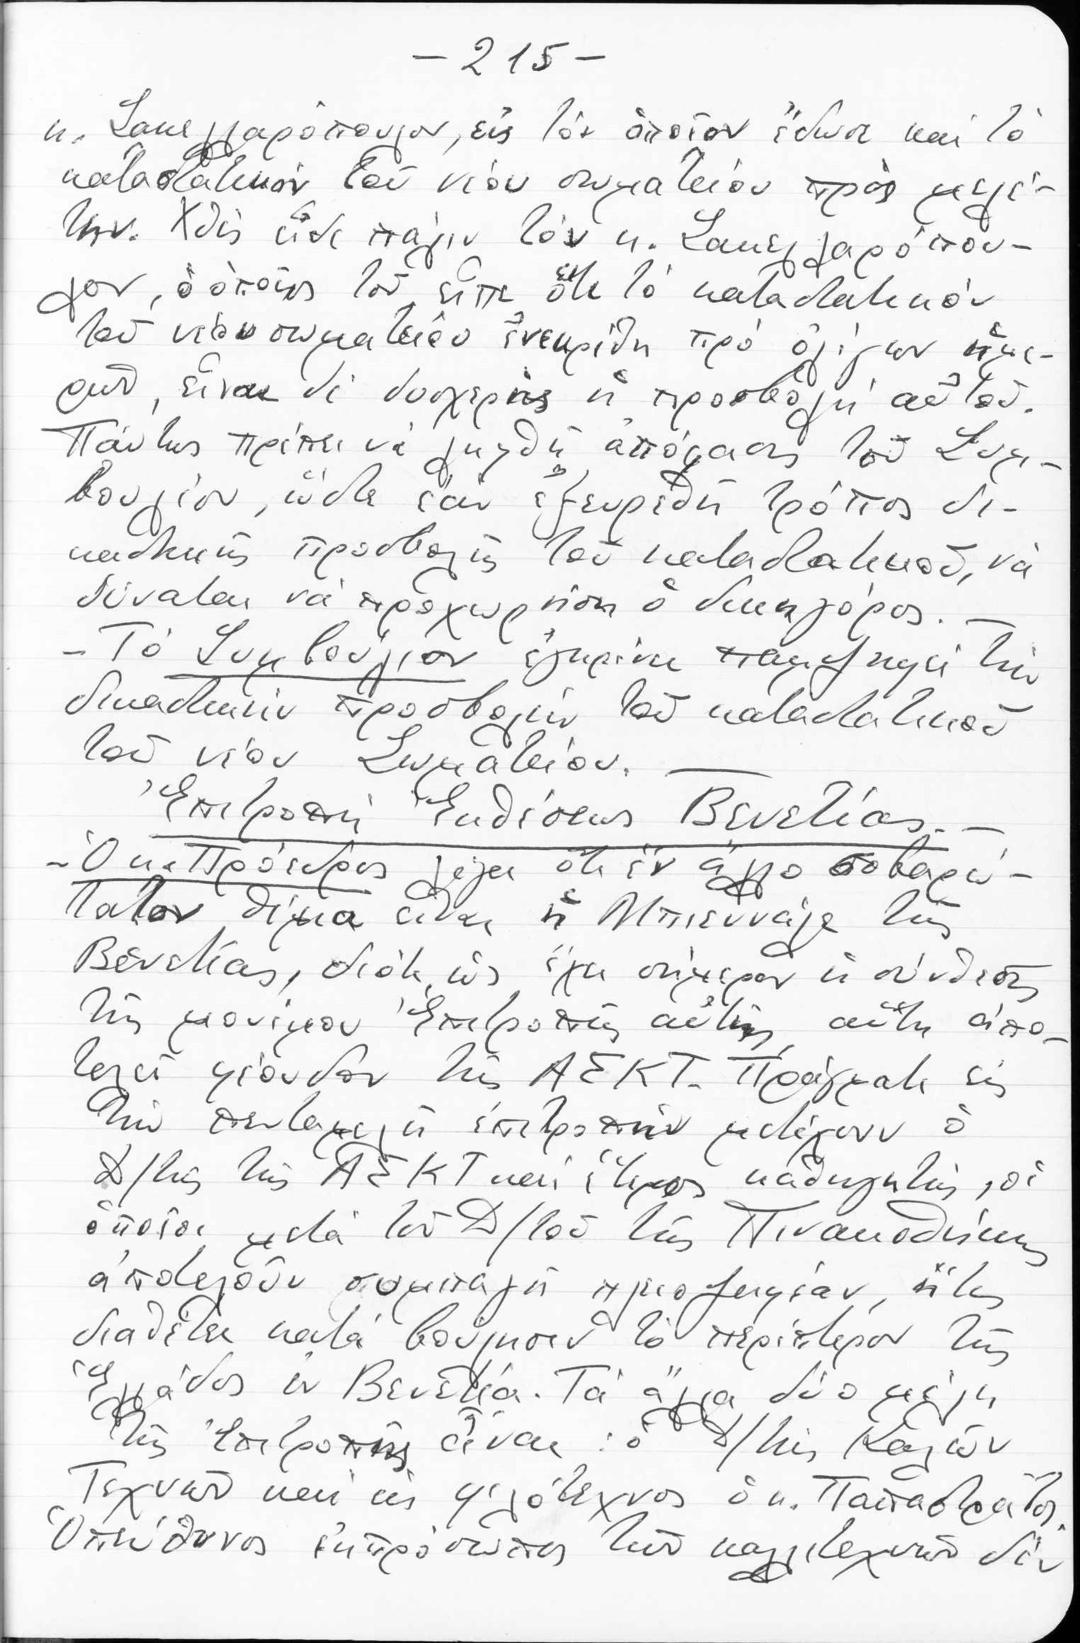 - 215 -
κ. Σακελλαρόπουλον, εἰς τόν ὁποῖον ἔδωσε καί τό
καταστατικόν τοῦ νέου σωματείου πρός μελέ-
την. Χθές εἶδε πάλιν τόν κ. Σακελλαρόπου-
λον, ὁ ὁποῖος τοῦ εἶπε ὅτι τό καταστατικόν
τοῦ νέου σωματείου ἐνεκρίθη πρό ὀλίγων ἡμε-
ρῶν, εἶναι δέ δυσχερής ἡ προσβολή αὐτοῦ.
Πάντως πρέπει νά ληφθῇ ἀπόφασις τοῦ Συμ-
βουλίου, ὥστε ἐάν ἐξευρεθῇ τρόπος δι-
καστικῆς προσβολῆς τοῦ καταστατικοῦ, νά
δύναται νά προχωρήσῃ ὁ δικηγόρος. —
- Τό Συμβούλιον ἐγκρίνει παμψηφεί τήν
δικαστικήν προσβολήν τοῦ καταστατικοῦ
τοῦ νέου Σωματείου. —
Ἐπιτροπή Ἐκθέσεως Βενετίας. -
- Ὁ κ. Πρόεδρος λέγει ὅτι ἕν ἄλλο σοβαρώ-
τατον θέμα εἶναι ἡ Μπιεννάλε τῆς
Βενετίας, διότι, ὡς ἔχει σήμερον ἡ σύνθεσις
τῆς μονίμου Ἐπιτροπῆς αὐτῆς, αὕτη ἀπο-
τελεῖ φέουδον τῆς ΑΣΚΤ. Πράγματι εἰς
τήν πενταμελῆ ἐπιτροπήν μετέχουν ὁ
Δ/τής τῆς ΑΣΚΤ καί ἕτερος καθηγητής, οἱ
ὁποῖοι μετά τοῦ Δ/τοῦ τῆς Πινακοθήκης
ἀποτελοῦν συμπαγῆ πλειοψηφίαν, ἥτις
διαθέτει κατά βούλησιν τό περίπτερον τῆς
Ἑλλάδος ἐν Βενετίᾳ. Τά ἄλλα δύο μέλη
τῆς Ἐπιτροπῆς εἶναι: ὁ Δ/τής Καλῶν
Τεχνῶν καί ὡς φιλότεχνος ὁ κ. Παπαστράτος.
Ὑπεύθυνος ἐκπρόσωπος τῶν καλλιτεχνῶν δέν